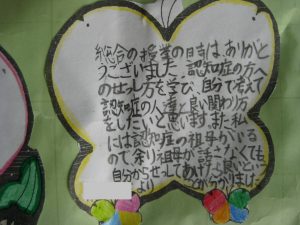 総合の授業の時は、ありがと
うございました。認知症の方へ
の仕方を学び、自分で考えて
認知症の人と良い関わり方
をしたいと思います。また、私
には認知症の祖母がいる
ので、余り祖母が話さなくても
自分からせっしてあげた良いという
より 分かりました